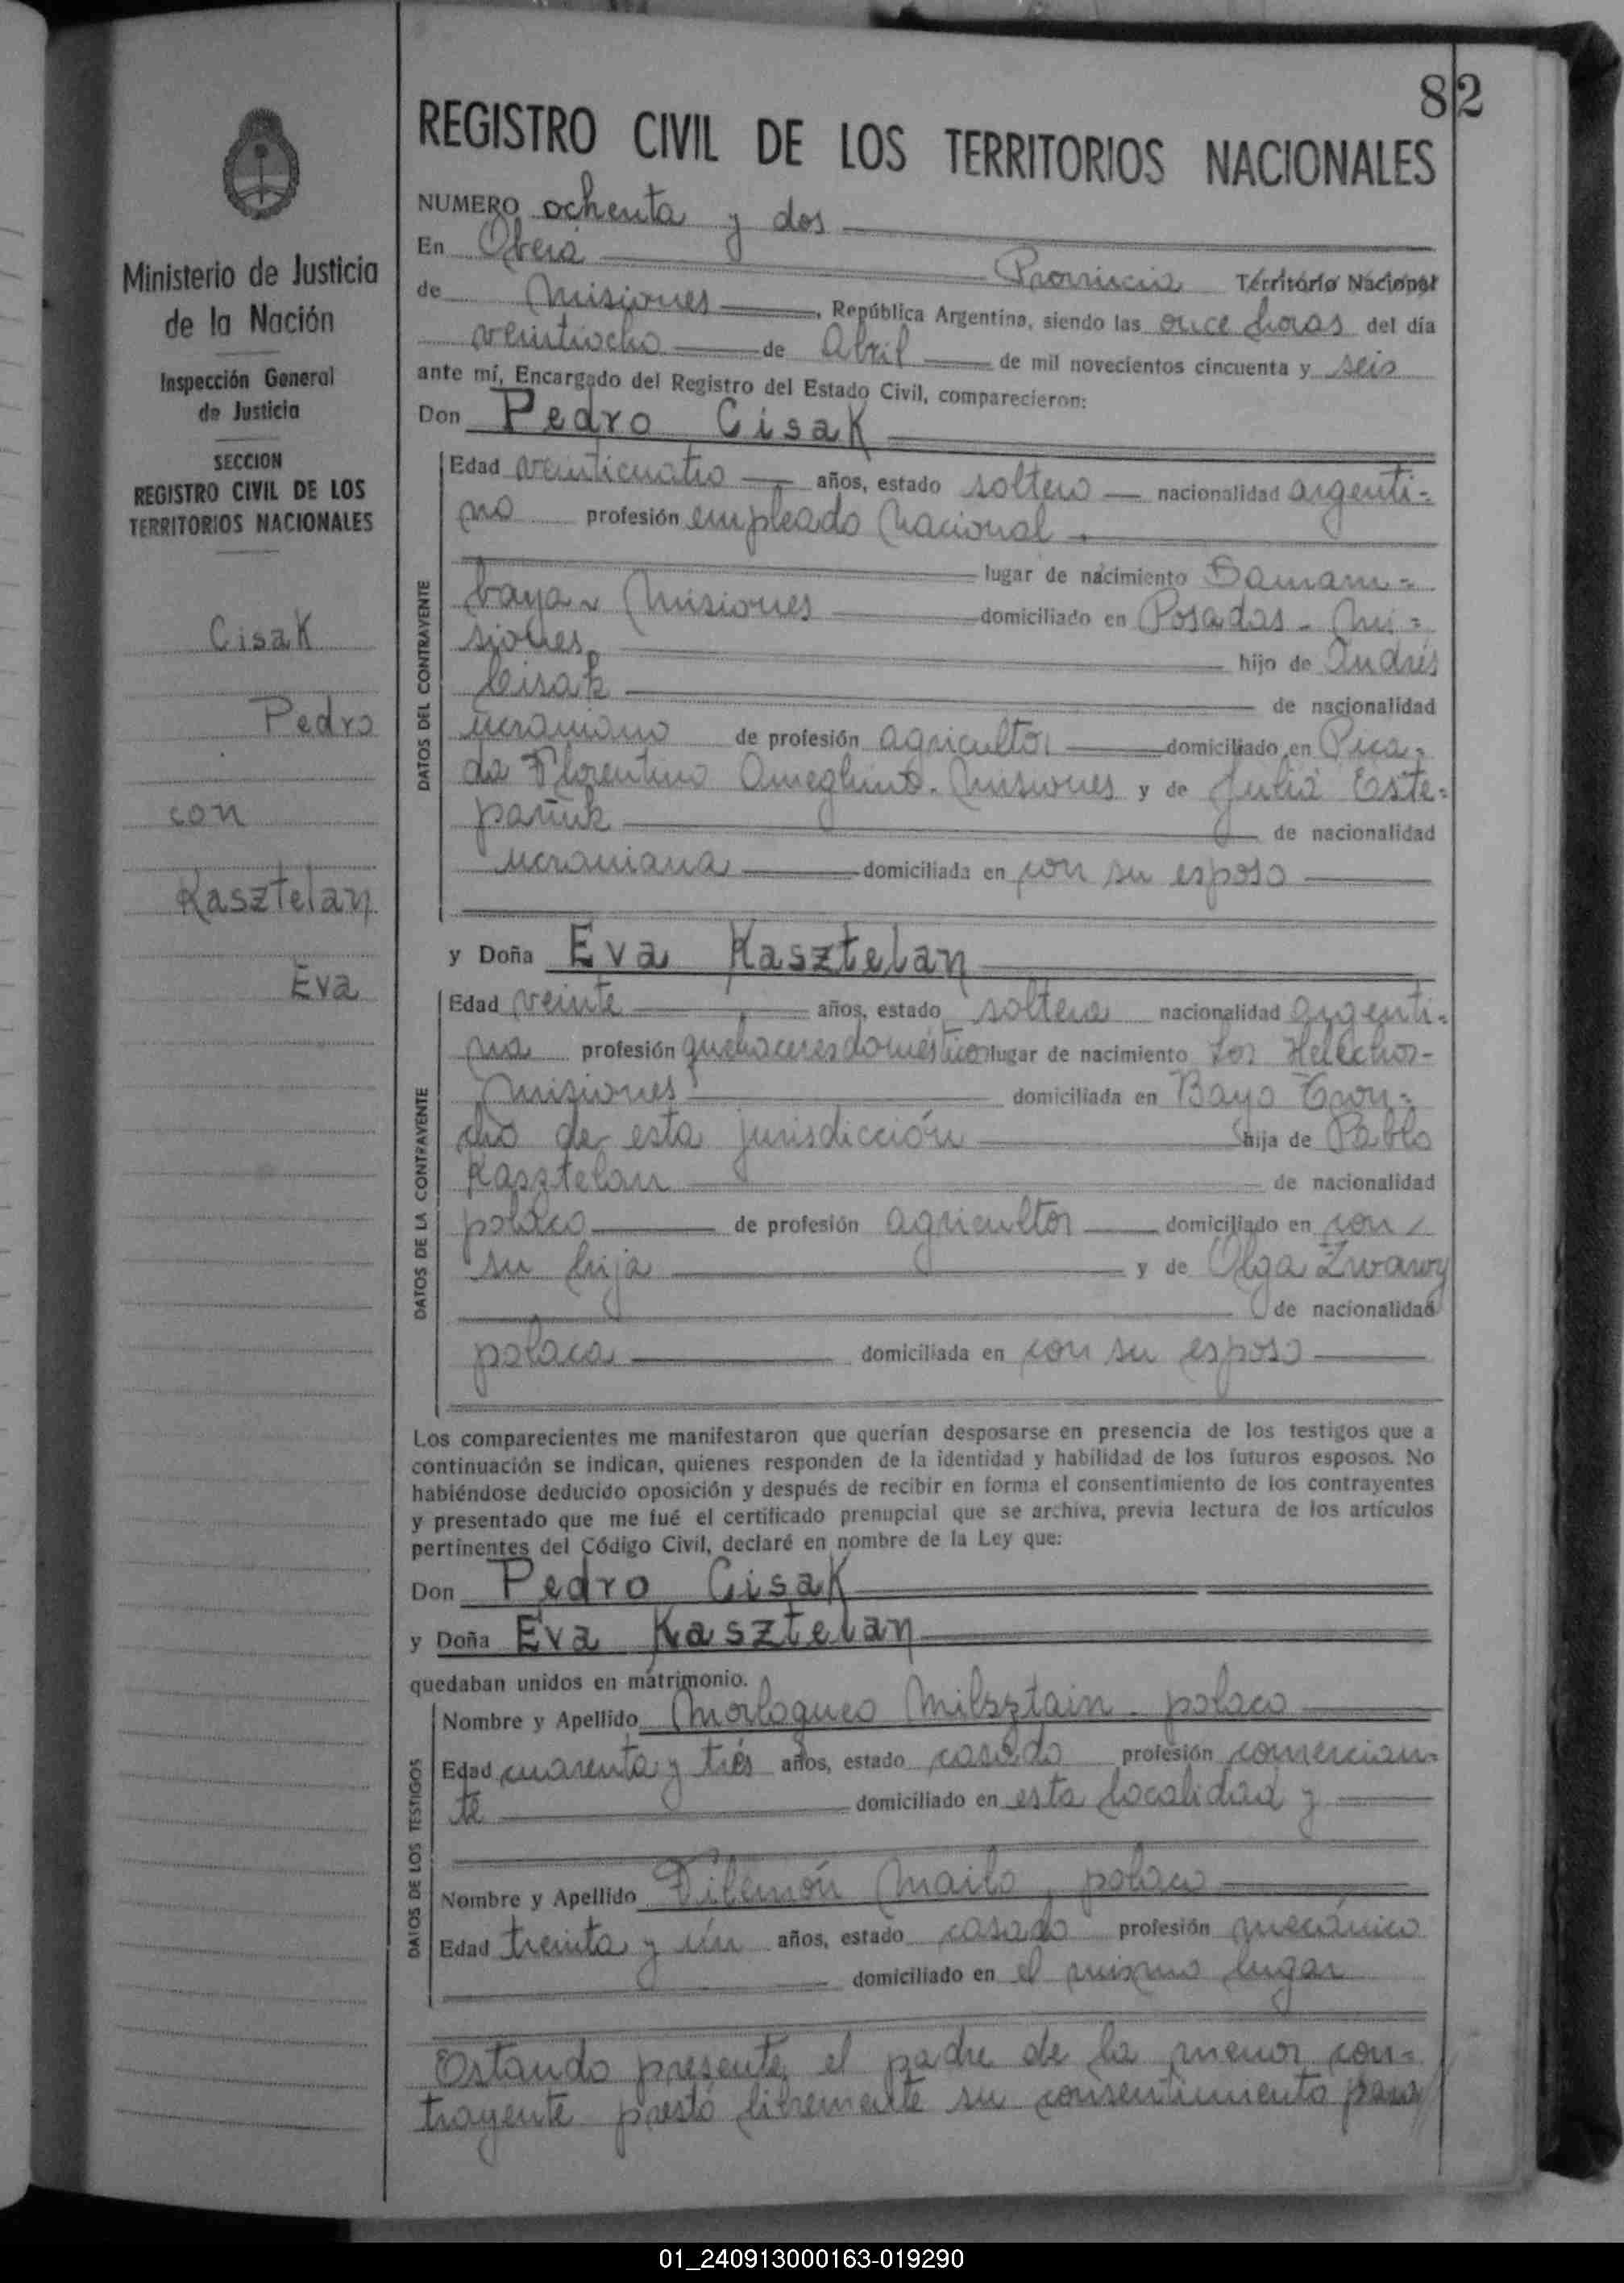 82
REGISTRO CIVIL DE LOS TERRITORIOS NACIONALES
Ministerio de Justicia
de la Nación
Inspección General
de Justicia
SECCION
REGISTRO CIVIL DE LOS
TERRITORIOS NACIONALES
Cisak
Pedro
con
Kasztelan
Eva
NUMERO ochenta y dos
En Oberá Provincia Territorio Nacional
de Misiones, República Argentina, siendo las once horas del día
veintiocho de Abril de mil novecientos cincuenta y seis
ante mí, Encargado del Registro del Estado Civil, comparecieron:
Don Pedro Cisak
DATOS DEL CONTRAYENTE
Edad veinticuatro años, estado soltero nacionalidad argenti=
no profesión empleado Nacional.
lugar de nacimiento
Misiones domiciliado en Posadas - Mi=
siones hijo de Andrés
Cisak de nacionalidad
ucraniano de profesión agricultor domiciliado en Pica=
da Florentino Ameghino. Misiones y de Julia Este=
pañuk de nacionalidad
ucraniana domiciliada en con su esposo
y Doña Eva Kasztelan
DATOS DE LA CONTRAYENTE
Edad veinte años, estado soltera nacionalidad argenti=
na profesión quehaceres domésticos lugar de nacimiento Los Helechos-
Misiones domiciliada en Bayo Tron=
cho de esta jurisdicción hija de Pablo
Kasztelan de nacionalidad
polaco de profesión agricultor domiciliado en con
su hija y de Olga Zwawy
de nacionalidad
polaca domiciliada en con su esposo
Los comparecientes me manifestaron que querían desposarse en presencia de los testigos que a
continuación se indican, quienes responden de la identidad y habilidad de los futuros esposos. No
habiéndose deducido oposición y después de recibir en forma el consentimiento de los contrayentes
y presentado que me fué el certificado prenupcial que se archiva, previa lectura de los artículos
pertinentes del Código Civil, declaré en nombre de la Ley que:
Don Pedro Cisak
y Doña Eva Kasztelan
quedaban unidos en matrimonio.
DATOS DE LOS TESTIGOS
Nombre y Apellido Milsztain - polaco
Edad cuarenta y tres años, estado casado profesión comercian=
te domiciliado en esta localidad y
Nombre y Apellido Filemón Mailo, polaco
Edad treinta y un años, estado casado profesión mecánico
domiciliado en el mismo lugar
Estando presente el padre de la menor con=
trayente prestó libremente su consentimiento para
01_240913000163-019290